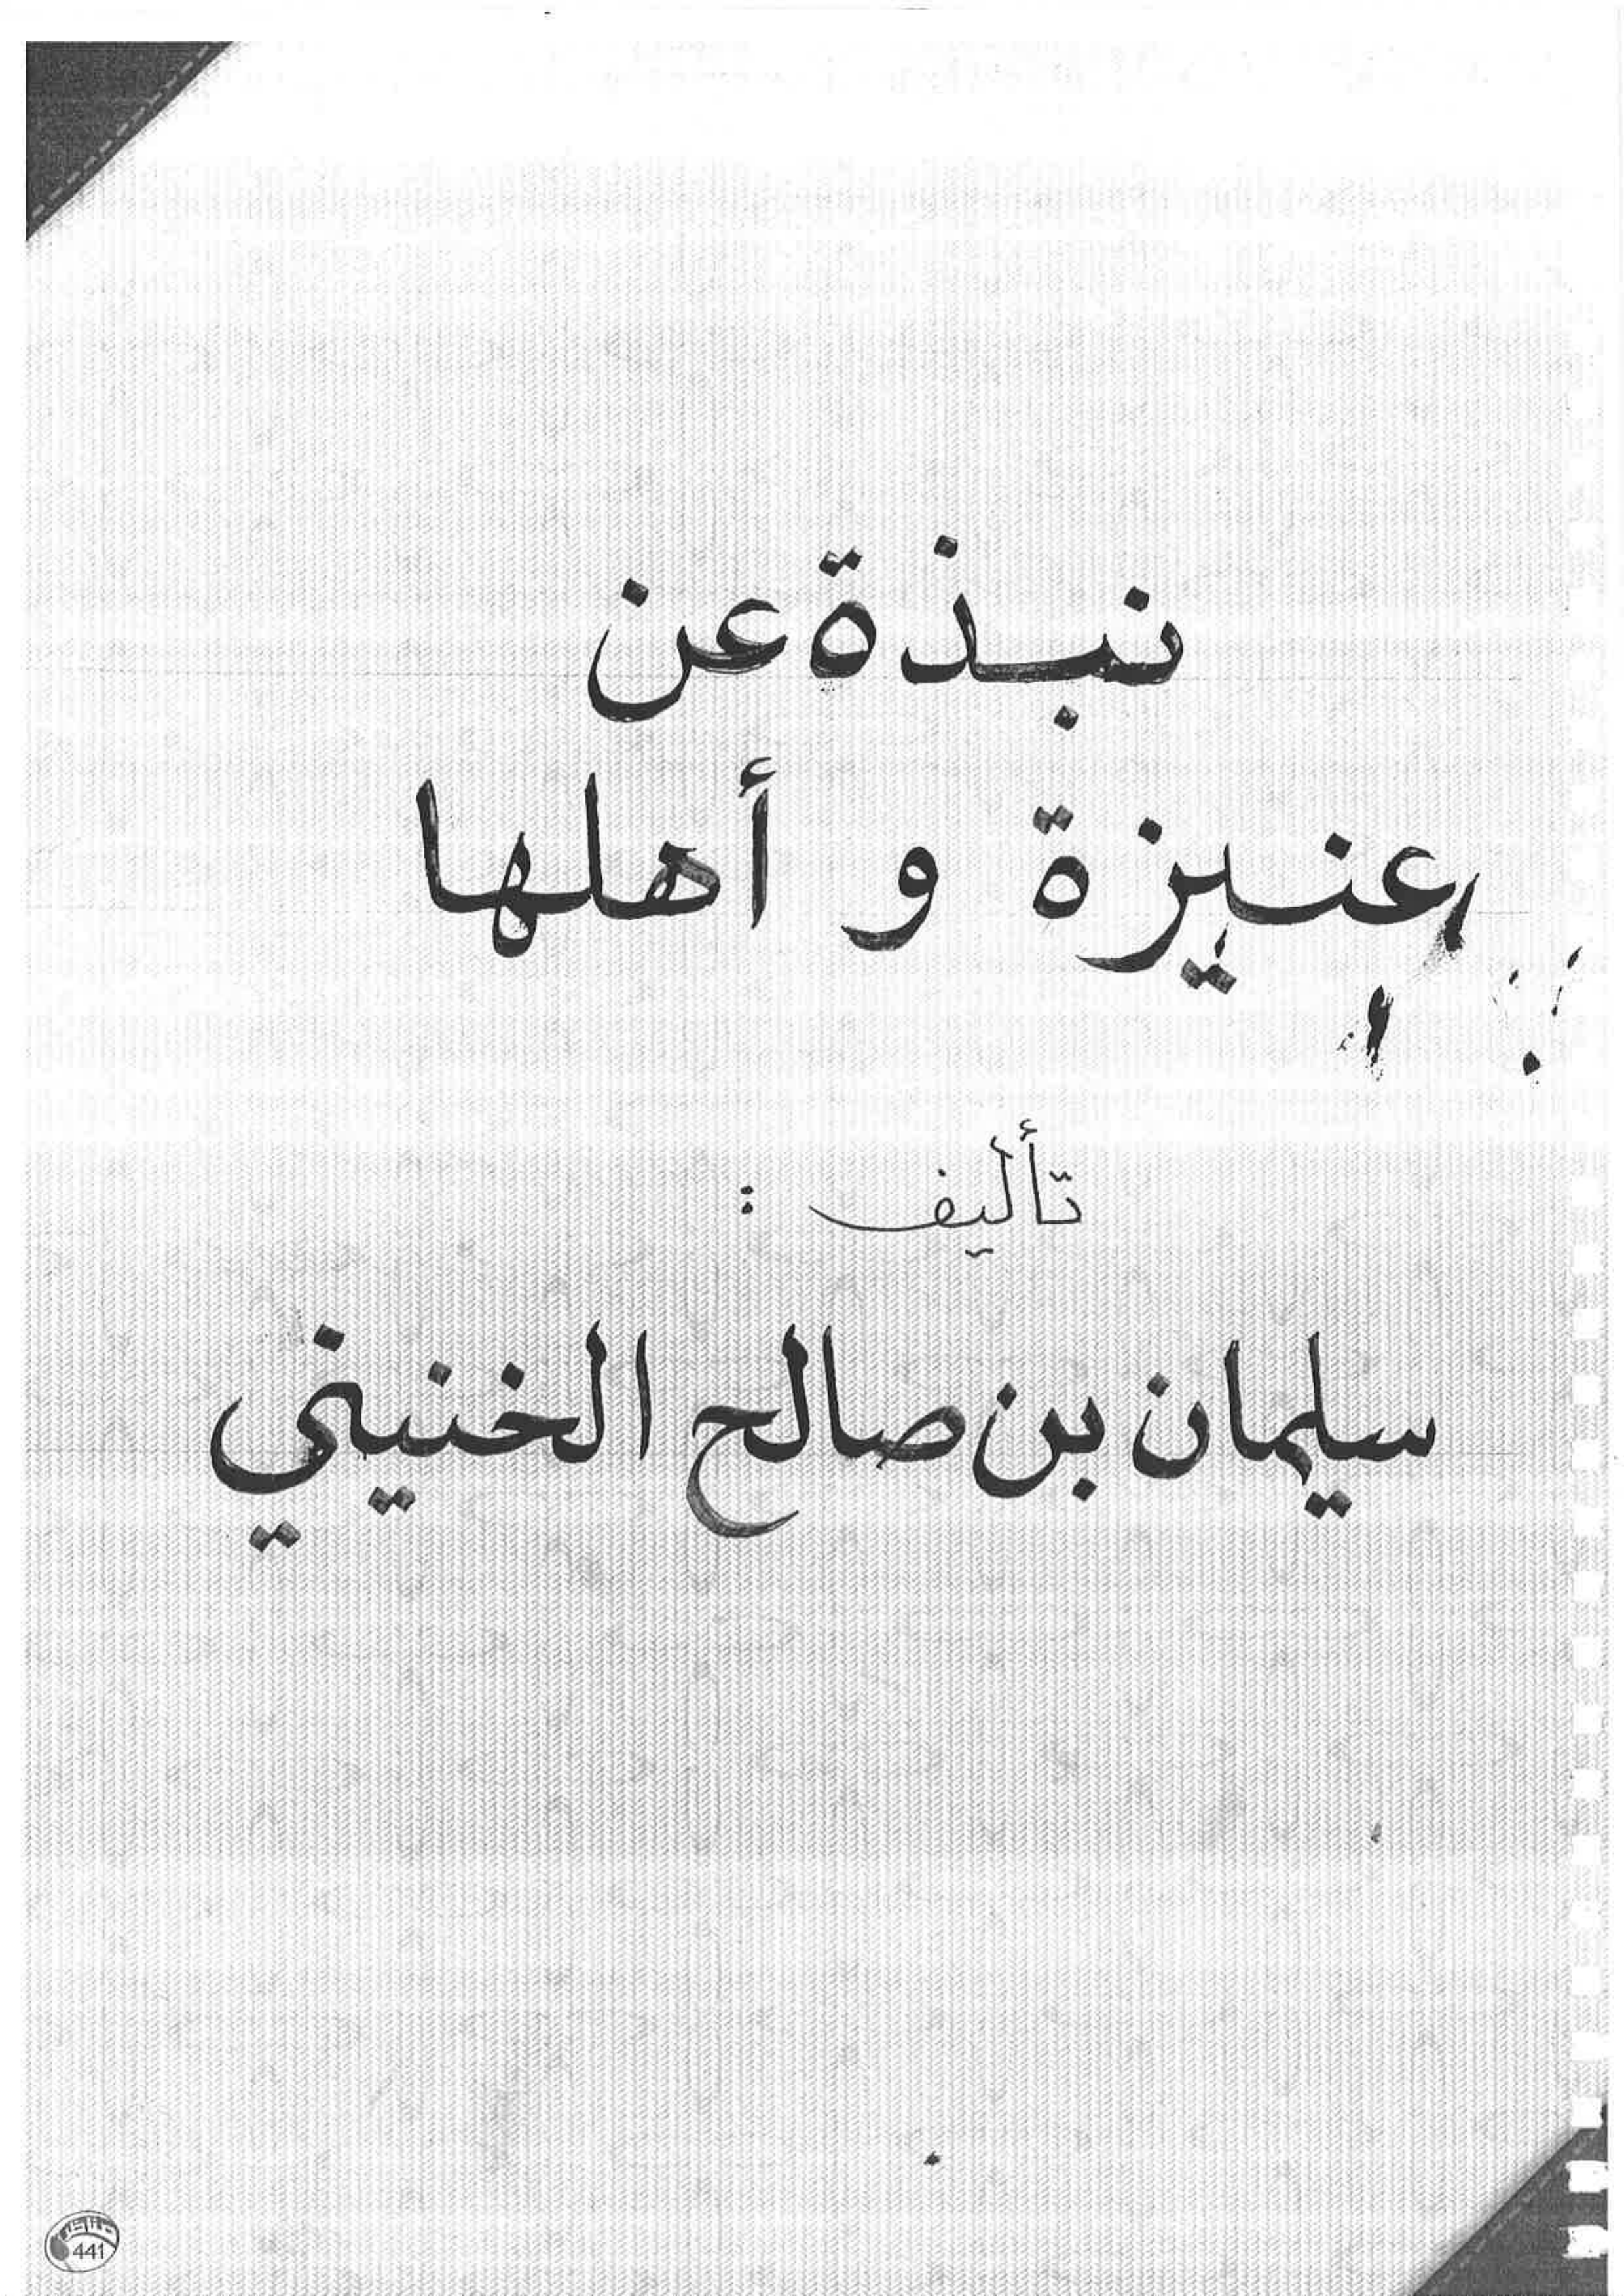 نبذة عن
عنيزة و أهلها
تأليف :
سليمان بن صالح الخنيني
441